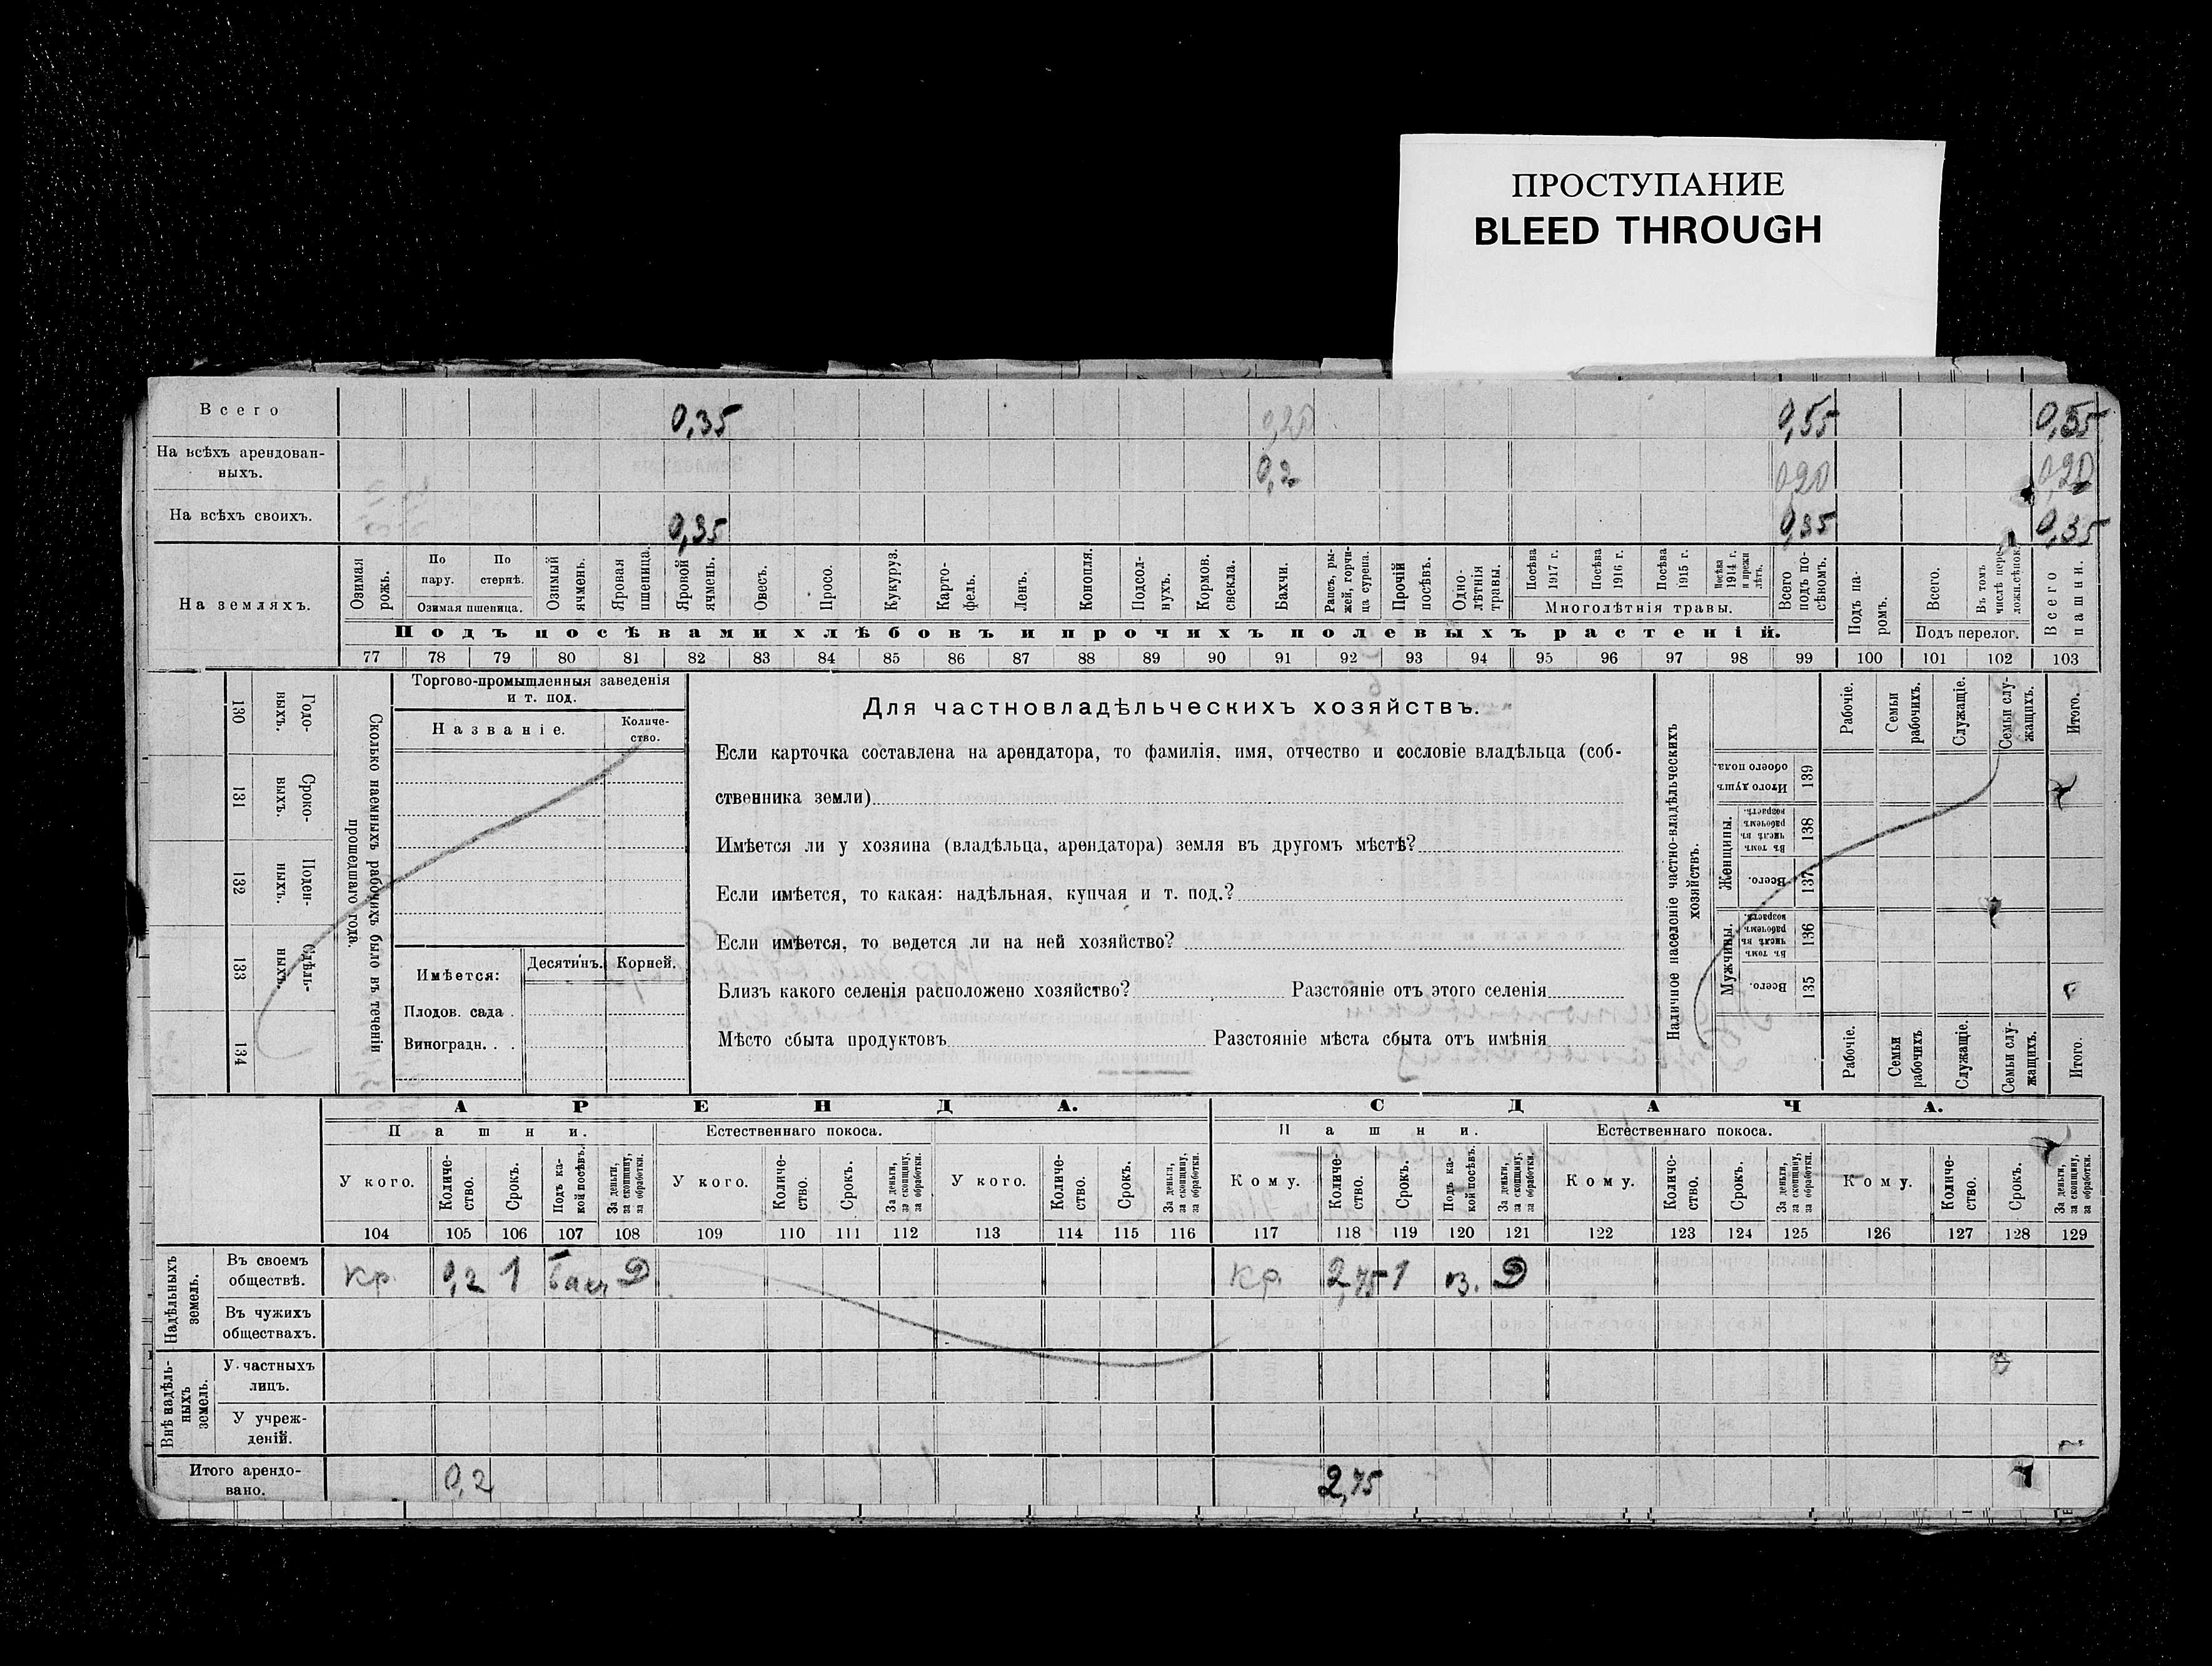 ПРОСТУПАНИЕ
BLEED THROUGH
Всего 0,35 0,20 0,55 0,55
На всѣхъ арендован-
ныхъ. 0,2 0,20 0,20
На всѣхъ своихъ. 0,35 0,35 0,35
На земляхъ.
Озимая рожь.
По пару.
По стернѣ.
Озимая пшеница.
Озимый ячмень.
Яровая пшеница.
Яровой ячмень.
Овесъ.
Просо.
Кукуруз.
Карто-
фель.
Ленъ.
Конопля.
Подсол-
нухъ.
Кормов. свекла.
Бахчи.
Рапсъ, ры-
жей, горчи-
ца сурепа.
Прочій посѣвъ.
Одно-
лѣтнія травы.
Посѣва 1917 г.
Посѣва 1916 г.
Посѣва 1915 г.
Посѣва 1914 г. и прежн лѣтъ.
Многолѣтнія травы.
Всего подъ по-
сѣвомъ.
Подъ па-
ромъ.
Всего.
Въ томъ числѣ пере-
ложн.сѣнок.
Подъ перелог.
Всего пашни.
Подъ посѣвами хлѣбовъ и прочихъ полевыхъ растеній.
77 78 79 80 81 82 83 84 85 86 87 88 89 90 91 92 93 94 95 96 97 98 99 100 101 102 103
130 Годо-
выхъ.
131 Сроко-
выхъ.
132 Поден-
ныхъ.
133 Сдѣль-
ныхъ.
134
Сколько наемныхъ рабочихъ было въ теченіи
прошедшаго года.
Торгово-промышленныя заведенія
и т. под.
Названіе.
Количе-
ство.
Имѣется:
Десятинъ.
Корней.
Плодов. сада .
Виноградн. . .
Для частновладѣльческихъ хозяйствъ.
Если карточка составлена на арендатора, то фамилія, имя, отчество и сословіе владѣльца (соб-
ственника земли)
Имѣется ли у хозяина (владѣльца, арендатора) земля въ другомъ мѣстѣ?
Если имѣется, то какая: надѣльная, купчая и т. под.?
Если имѣется, то ведется ли на ней хозяйство?
Близъ какого селенія расположено хозяйство? Разстояніе отъ этого селенія
Мѣсто сбыта продуктовъ Разстояніе мѣста сбыта отъ имѣнія
Наличное населеніе частно-владѣльческихъ
хозяйствъ.
Рабочіе.
Семьи рабочихъ.
Служащіе.
Семьи слу-
жащихъ.
Итого.
Итого душъ обоего пола. 139
Женщины.
Въ томъ числѣ въ рабочемъ возрастѣ. 138
Всего. 137
Мужчины.
Въ томъ числѣ въ рабочемъ возрастѣ. 136
Всего. 135
Рабочіе.
Семьи рабочихъ
Служащіе.
Семьи слу-
жащихъ.
Итого.
АРЕНДА. СДАЧА.
Пашни. Естественнаго покоса. Пашни. Естественнаго покоса.
У кого. Количе-
ство. Срокъ. Подъ ка-
кой посѣвъ. За деньги, за скопщину, за обработки.
У кого. Количе-
ство. Срокъ. За деньги, за скопщину, за обработки.
У кого. Количе-
ство. Срокъ. За деньги, за скопщину, за обработки.
Кому. Количе-
ство. Срокъ. Подъ ка-
кой посѣвъ. За деньги, за скопщину, за обработки.
Кому. Количе-
ство. Срокъ. За деньги, за скопщину, за обработки.
Кому. Количе-
ство. Срокъ. За деньги, за скопщину, за обработки.
104 105 106 107 108 109 110 111 112 113 114 115 116 117 118 119 120 121 122 123 124 125 126 127 128 129
Надѣльныхъ земель.
Въ своемъ
обществѣ. Кр. 0,2 1 Бахч Д Кр. 2,75 1 оз. Д
Въ чужихъ
обществахъ.
Внѣ надѣль-
ныхъ земель.
У частныхъ
лицъ.
У учреж-
деній.
Итого арендо-
вано. 0,2 2,75